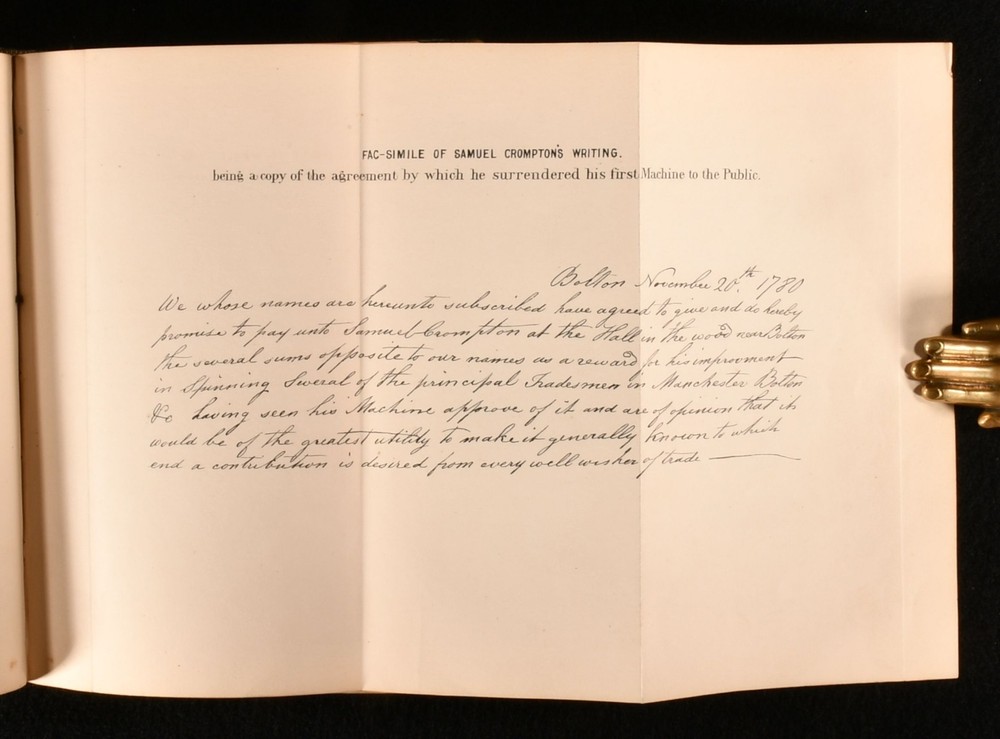 FAC-SIMILE OF SAMUEL CROMPTON'S WRITING.
being a copy of the agreement by which he surrendered his first Machine to the Public.
Bolton November 20th. 1780
We whose names are hereunto subscribed have agreed to give and do hereby
promise to pay unto Samuel Crompton at the Hall in the wood near Bolton
the several sums opposite to our names as a reward for his improvment
in Spinning Several of the principal Tradesmen in Manchester Bolton
&c having seen his Machine approve of it and are of opinion that it
would be of the greatest utility to make it generally known to which
end a contribution is desired from every well wisher of trade